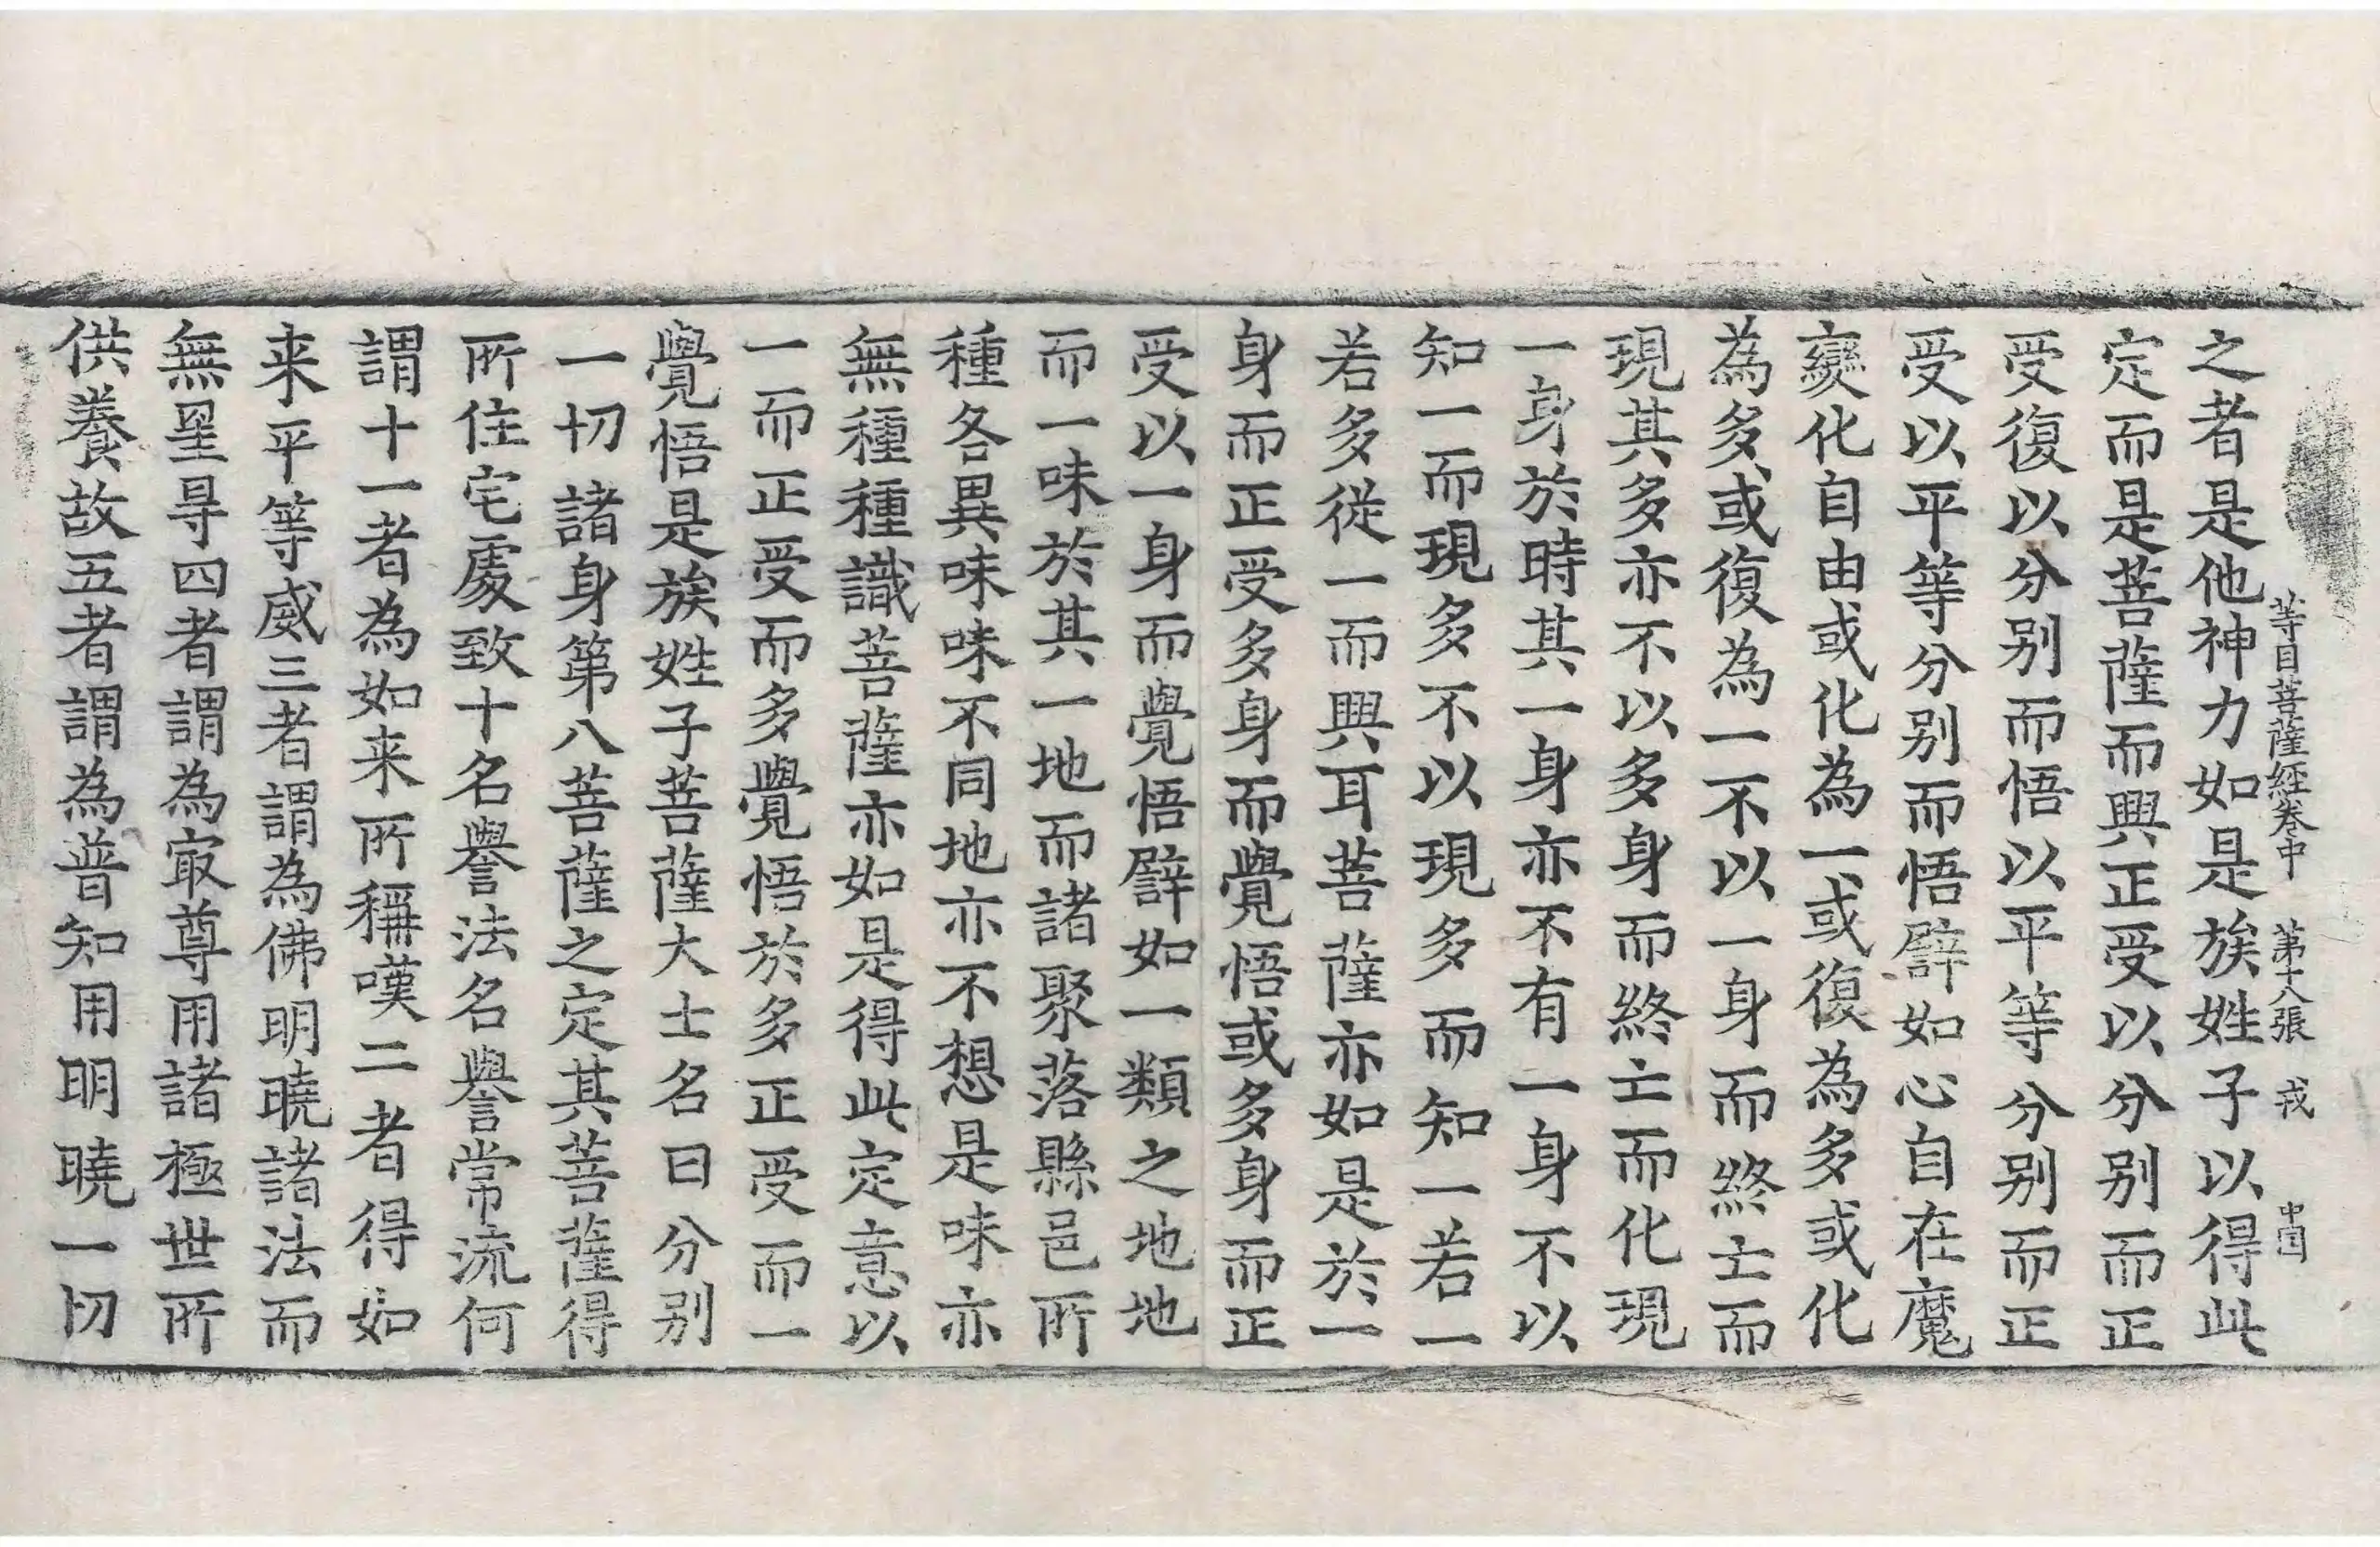 等目菩薩經卷中 第十八張 戎 中囯
之者是他神力如是族姓子以得此
定而是菩薩而興正受以分别而正
受復以分别而悟以平等分别而正
受以平等分别而悟譬如心自在魔
變化自由或化為一或復為多或化
為多或復為一不以一身而終士而
現其多亦不以多身而終士而化現
一身於時其一身亦不有一身不以
知一而現多不以現多而知一若一
若多從一而興耳菩薩亦如是於一
身而正受多身而覺悟或多身而正
受以一身而覺悟譬如一類之地地
而一味於其一地而諸聚落縣邑所
種各異味味不同地亦不想是味亦
無種種識菩薩亦如是得此定意以
一而正受而多覺悟於多正受而一
覺悟是族姓子菩薩大士名曰分别
一切諸身第八菩薩之定其菩薩得
所住宅處致十名譽法名譽常流何
謂十一者為如来所稱嘆二者得如
来平等威三者謂為佛明曉諸法而
無罣㝵四者謂為㝡尊用諸極世所
供養故五者謂為普知用明曉一切